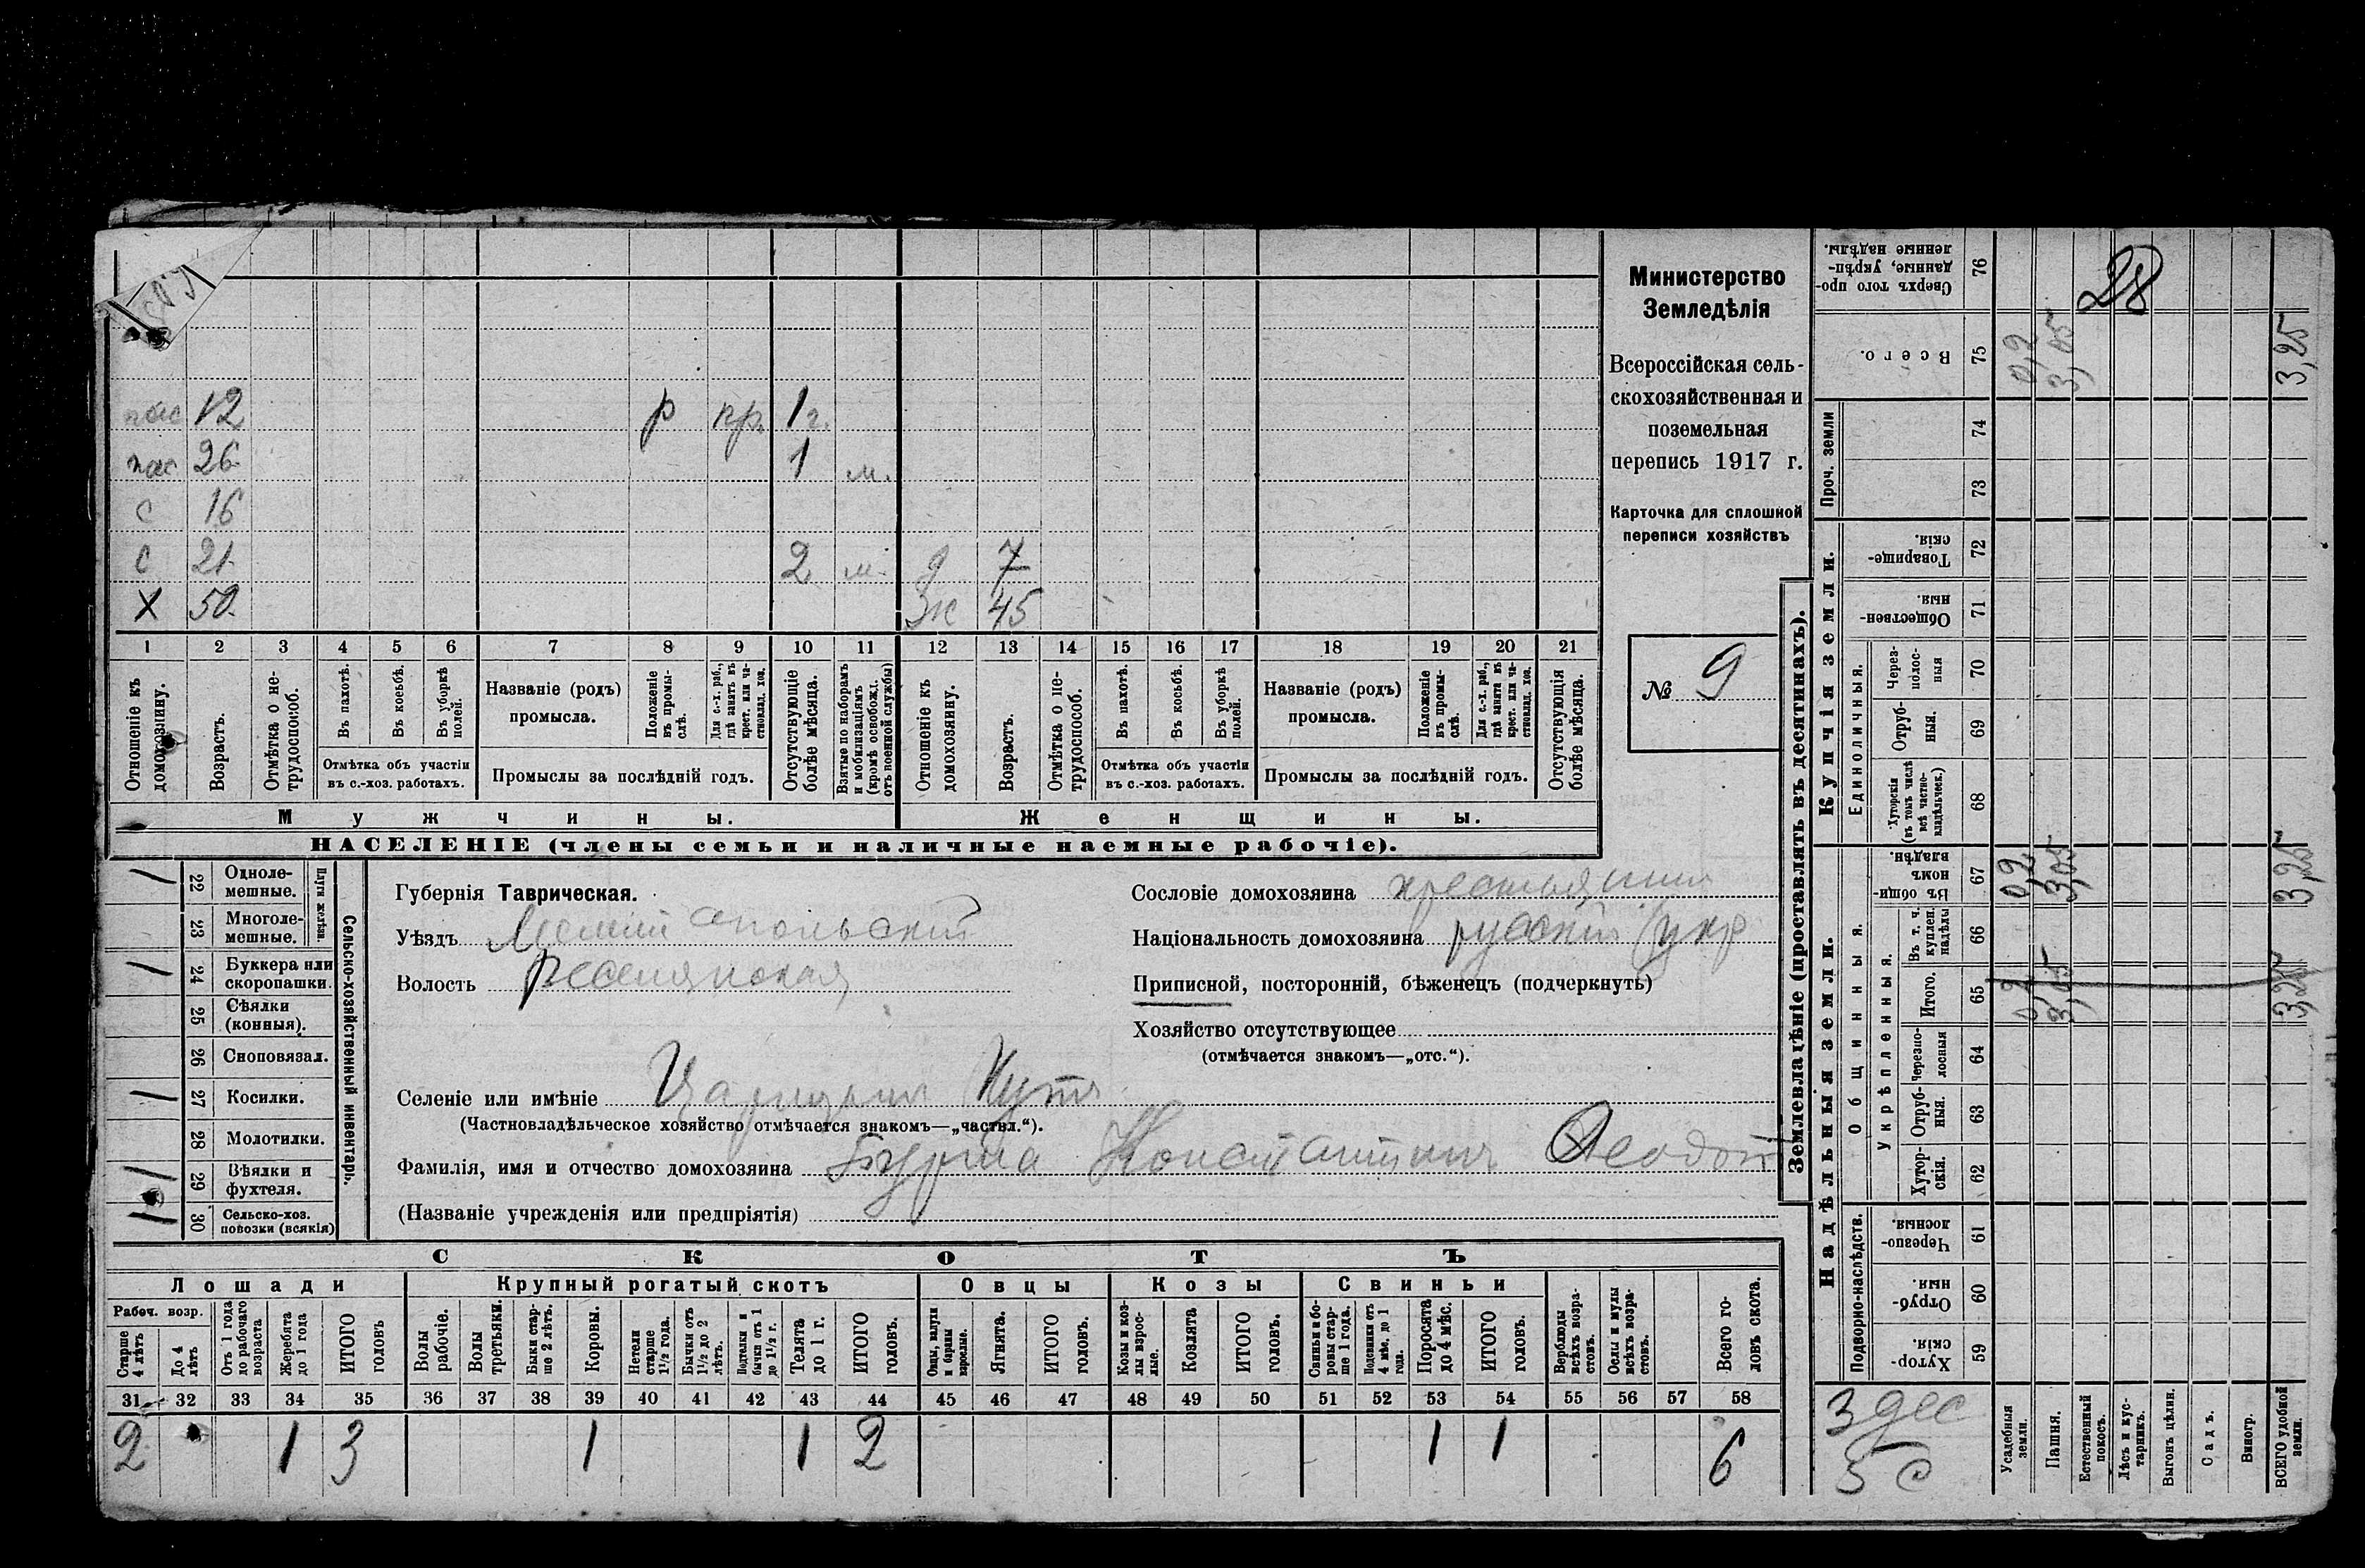 12 р пр. 1 г.
26 1 м.
с 16
с 21 2 м. д 7
Х 50 ж 45
1 2 3 4 5 6 7 8 9 10 11 12 13 14 15 16 17 18 19 20 21
Отношеніе къ домохозяину.
Возрастъ.
Отмѣтка о не-
трудоспособ.
Въ пахотѣ.
Въ косьбѣ.
Въ уборкѣ полей.
Отмѣтка объ участіи
въ с.-хоз. работахъ.
Названіе (родъ)
промысла.
Положеніе въ промы-
слѣ.
Для с.-х. раб., гдѣ занятъ въ крест. или ча-
стновлад. хоз.
Промыслы за послѣдній годъ.
Отсутствующіе болѣе мѣсяца.
Взятые по наборамъ и мобилизаціямъ (кромѣ освобожд. отъ военной службы)
Отношеніе къ домохозяину.
Возрастъ.
Отмѣтка о не-
трудоспособ.
Въ пахотѣ.
Въ косьбѣ.
Въ уборкѣ полей.
Отмѣтка объ участіи
въ с.-хоз. работахъ.
Названіе (родъ)
промысла.
Положеніе въ промы-
слѣ.
Для с.-х. раб., гдѣ занята въ крест. или ча-
стновлад. хоз.
Промыслы за послѣдній годъ.
Отсутствующія болѣе мѣсяца.
Мужчины.
Женщины.
НАСЕЛЕНІЕ (члены семьи и наличные наемные рабочіе).
Министерство
Земледѣлія
Всероссійская сель-
скохозяйственная и
поземельная
перепись 1917 г.
Карточка для сплошной
переписи хозяйствъ
№ 9
1 22 Однолe-
мешные.
23 Многоле-
мешные.
Плуги желѣзн.
1 24 Буккера или
скоропашки.
25 Сѣялки
(конныя).
26 Сноповязал.
1 27 Косилки.
28 Молотилки.
1 29 Вѣялки и
фухтеля.
1 30 Сельско-хоз.
повозки (всякія)
Сельско-хозяйственный инвентарь.
Губернія Таврическая.
Уѣздъ Мелитопольскій
Волость
Селеніе или имѣніе Царицынъ Кутъ
(Частновладѣльческое хозяйство отмѣчается знакомъ—„частвл.“).
Фамилія, имя и отчество домохозяина Бурма Константинъ Ѳеодот
(Названіе учрежденія или предпріятія)
Сословіе домохозяина крестьянинъ
Національность домохозяина русскій (укр
Приписной, посторонній, бѣженецъ (подчеркнуть)
Хозяйство отсутствующее
(отмѣчается знакомъ—„отс.“).
СКОТЪ
Лошади
Рабоч. возр.
Старше 4 лѣтъ
До 4 лѣтъ
Отъ 1 года до рабочаго возраста
Жеребята до 1 года
ИТОГО головъ
Крупный рогатый скотъ
Волы рабочіе.
Волы третьяки.
Быки стар-
ше 2 лѣтъ.
Коровы.
Нетели старше 1½ года.
Бычки отъ 1½ до 2 лѣтъ.
Подтелки и бычки отъ 1 до 1½ г.
Телята до 1 г.
ИТОГО головъ.
Овцы
Овцы, валухи и бараны взрослые.
Ягнята.
ИТОГО головъ.
Козы
Козы и коз-
лы взрос-
лые.
Козлята
ИТОГО головъ.
Свиньи
Свиньи и бо-
ровы стар-
ше 1 года.
Подсвинки отъ 4 мѣс. до 1 года.
Поросята до 4 мѣс.
ИТОГО головъ.
Верблюды всѣхъ возра-
стовъ.
Ослы и мулы всѣхъ возра-
стовъ.
Всего го-
ловъ скота.
31 32 33 34 35 36 37 38 39 40 41 42 43 44 45 46 47 48 49 50 51 52 53 54 55 56 57 58
2 1 3 1 1 2 1 1 6
Землевладѣніе (проставлять въ десятинахъ).
Сверхъ того про-
данные, укрѣп-
ленные надѣлы. 76
28
Всего. 75 0,2 3,05 3,25
Проч. земли 74
73
Купчія земли.
Товарище-
скія. 72
Обществен-
ныя. 71
Единоличныя.
Через-
полос-
ныя 70
Отруб-
ныя. 69
Хуторскія (въ томъ числѣ всѣ частно-
владѣльческ.) 68
Надѣльныя земли.
Общинныя.
Въ общин-
номъ владѣн. 67 0,2 3,05 3,25
Укрѣпленныя.
Въ т. ч. куплен. надѣлы 66
Итого. 65 0,2 3,05 3,25
Черезпо-
лосныя 64
Отруб-
ныя. 63
Хутор-
скія. 62
Подворно-наслѣдств.
Черезпо-
лосныя 61
Отруб-
ныя. 60
Хутор-
скія. 59
3 дес
5 с
Усадебныя земли.
Пашня.
Естественный покосъ.
Лѣсъ и кус-
тарникъ.
Выгонъ цѣлин.
Садъ.
Виногр.
ВСЕГО удобной земли.